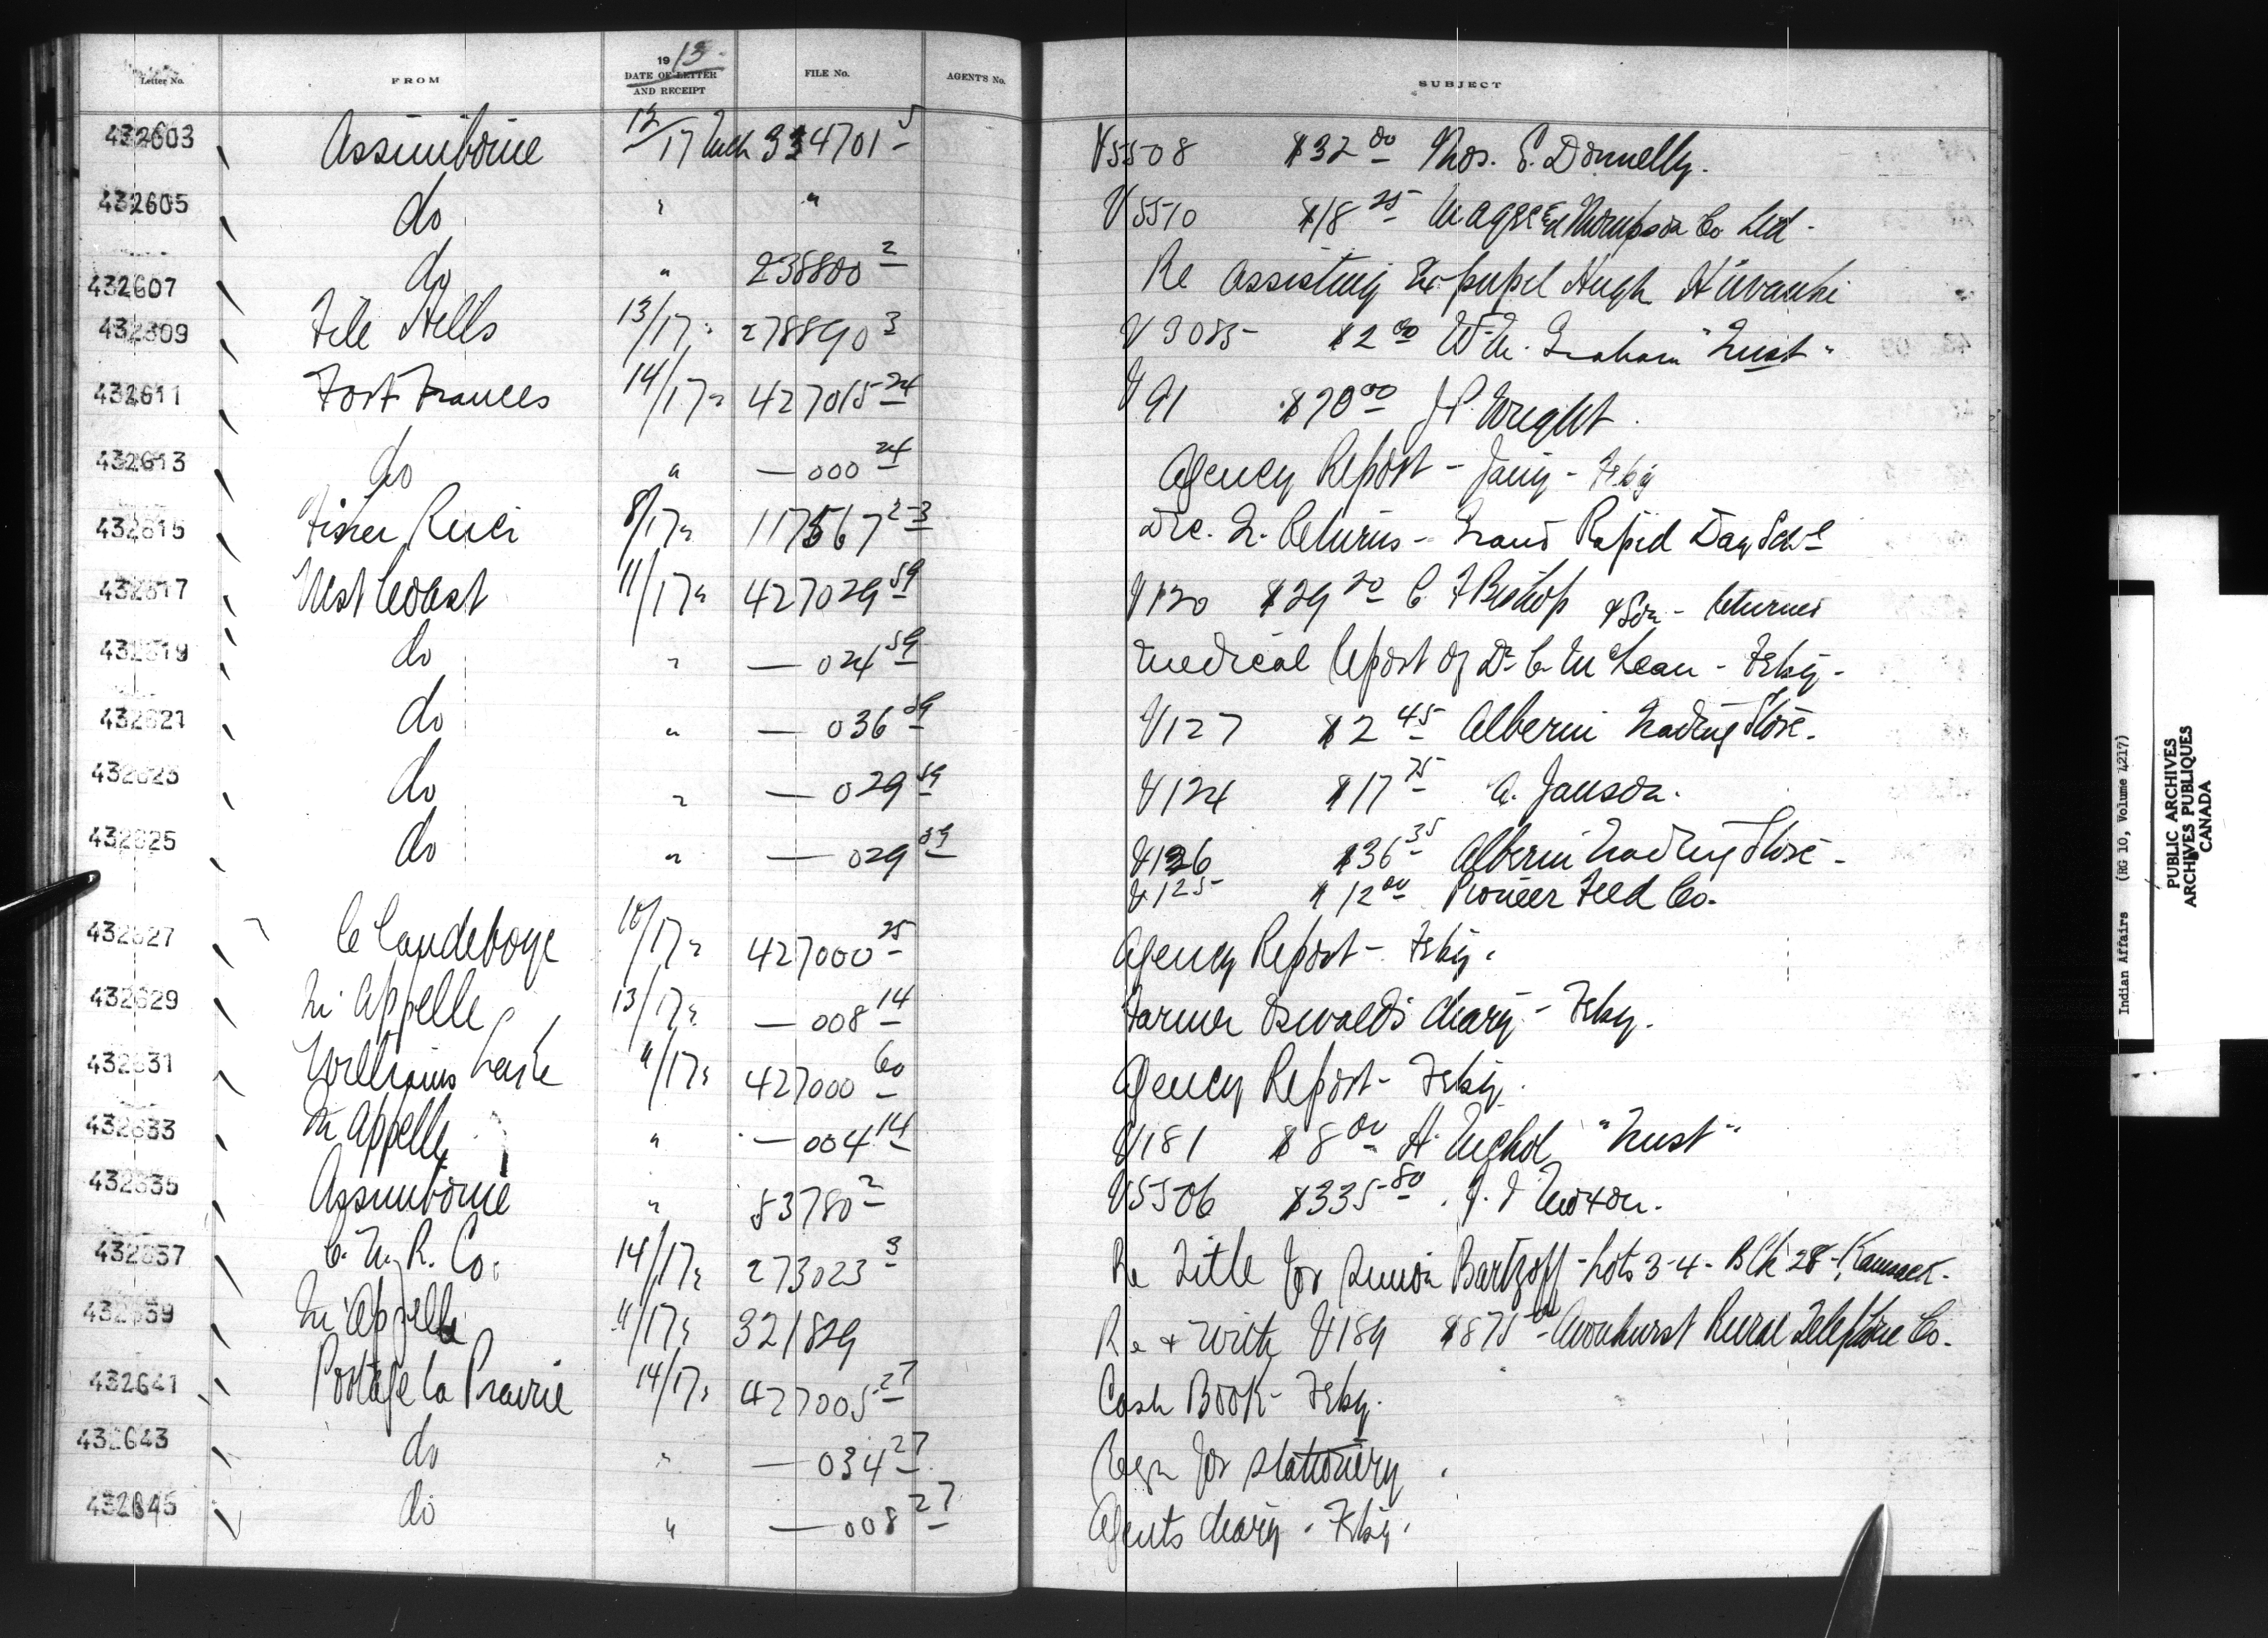 Letter No. FROM 1913 DATE OF LETTER AND RECEIPT FILE No. AGENT'S No. SUBJECT
432603 Assiniboine 12/17 Mch 334701 5 V5508 $32 00 Thos. E. Donnelly.
432605 do " " V5510 $18 25 Thompson Co Ltd.
432607 do " 238800 2 Re assisting Ex-pupil Hugh
432609 File Hills 13/17 " 278890 3 V3085 $2 00 W.M. Graham "Trust"
432611 Fort Frances 14/17 " 427015 24 V91 $70 00 J.P. Wright.
432613 do " — 000 24 Agency Report - Jany - Feby
432615 Fisher River 8/17 " 117567 2-3 Dec. Q. Returns - Grand Rapid Day Schl
432617 West Coast 11/17 " 427029 59 V120 $29 20 C F Bishop & Son - returned
432619 do " — 024 59 Medical report of Dr. C. McLean - Feby -
432621 do " — 036 59 V127 $2 45 Alberni Trading Store.
432623 do " — 029 59 V124 $17 75 A. Janson.
432625 do " — 029 59 V126 $36 35 Alberni Trading Store -
V125 $12 00 Pioneer Feed Co.
432627 Clandeboye 10/17 " 427000 25 Agency Report - Feby.
432629 Qu'Appelle 13/17 " — 008 14 Farmer Oswald's diary - Feby.
432631 Williams Lake 11/17 " 427000 60 Agency Report - Feby.
432633 Qu'Appelle " — 004 14 V181 $8 00 H. Nichol "Trust"
432635 Assiniboine " 83780 2 V5506 $335 80
432637 C. N. R. Co. 14/17 " 273023 3 Re Title for Simon Bartzoff - Lots 3-4 - Blk 28 - Kamsack.
432639 Qu'Appelle 11/17 " 321829 Re & with V189 $875 00 - Avonhurst Rural Telephone Co.
432641 Portage la Prairie 14/17 " 427005 27 Cash Book - Feby.
432643 do " — 034 27 Reqn for stationery.
432645 do " — 008 27 Agents diary - Feby.
Indian Affairs (RG 10, Volume 4217)
PUBLIC ARCHIVES
ARCHIVES PUBLIQUES
CANADA